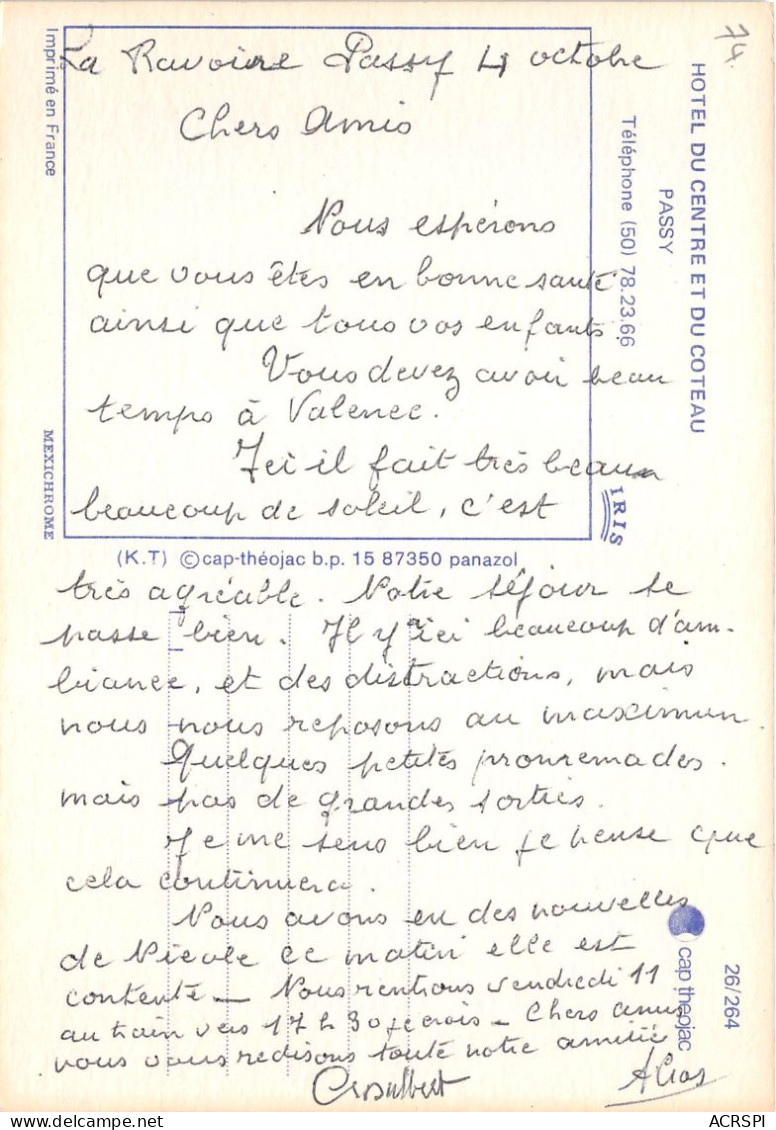 74
La Ravoire Passy 4 octobre
Chers Amis
Nous espérons
que vous êtes en bonne santé
ainsi que tous vos enfants.
Vous devez avoir beau
temps à Valence.
Ici il fait très beau
beaucoup de soleil, c'est
très agréable. Notre séjour se
passe bien. Il y a ici beaucoup d'am-
biance, et des distractions, mais
nous nous reposons au maximun.
Quelques petites pronremades.
mais pas de grandes sorties.
Je me sens bien je pense que
cela continuera.
Nous avons eu des nouvelles
de Nicole ce matin elle est
contente _ Nous rentrons vendredi 11
au train vers 17 h 30 je crois _ Chers amis
nous vous redisons toute notre amitié
HOTEL DU CENTRE ET DU COTEAU
PASSY
Téléphone (50) 78.23.66
Imprimé en France
MEXICHROME
IRIS
(K.T) ©cap-théojac b.p. 15 87350 panazol
26/264
cap théojac
ACRSPI